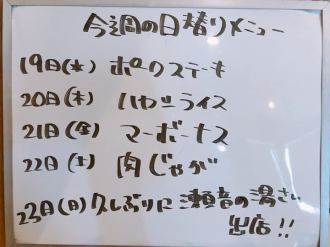 今週の日替りメニュー
19日(水) ポークステーキ
20日(木) ハヤシライス
21日(金) マーボーナス
22日(土) 肉じゃが
23日(日) 久しぶりに 瀬音の湯さん
出店!!